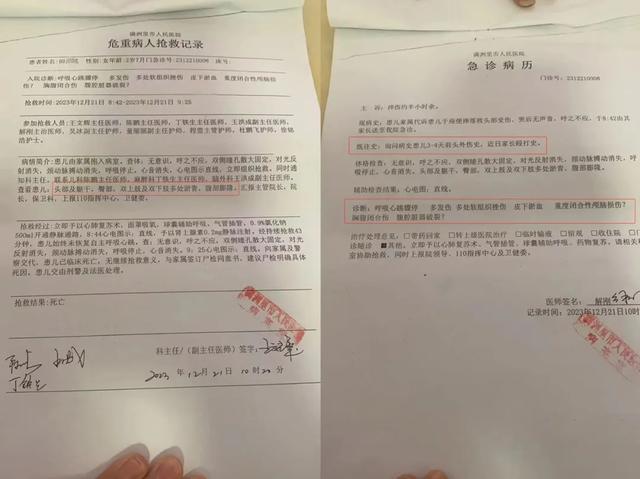 满洲里市人民医院
危重病人抢救记录
性别:女年龄:2岁7月门急诊号:2312210006 床号:
入院诊断:呼吸心跳骤停 多发伤 多处软组织挫伤 皮下淤血 重度闭合性颅脑损
伤? 胸腹闭合伤 腹腔脏器破裂?
抢救时间:2023年12月21日 8:42-2023年12月21日 9:25
参加抢救人员:王文辉主任医师、陈鹏主任医师、丁轶生主任医师、王洪成副主任医师、
解刚主治医师、吴冰副主任护师、董丽丽副主任护师、程雪主管护师、杜鹏飞护师、徐铭
浩护士。
病情简介:患儿由家属抱入病室。查体:无意识,呼之不应,双侧瞳孔散大固定,对光反
射消失,颈动脉搏动消失,呼吸停止,心音消失。心电图:直线,立即组织抢救,同时通
知科主任。联系儿科陈鹏主任医师、麻醉科丁轶生主任医师、脑外科王洪成副主任医师。
查看患儿,头部及躯干、臀部、双上肢及双下肢多处淤青、腹部膨隆。汇报主管院长,院
长,保卫科,上报110指挥中心,卫健委。
抢救经过:立即予以心肺复苏术,面罩吸氧,球囊辅助呼吸,气管插管,0.9%氯化钠
500ml开通静脉通路,8:44心电图:直线,予以肾上腺素0.2mg静脉注射,经持续抢救43
分钟,患儿始终未恢复自主呼吸心跳,查:无意识,呼之不应,双侧瞳孔散大固定,对光
反射消失,颈动脉搏动消失,呼吸停止,心音消失。9:25心电图示:直线,向家属及警
察交代,患儿已临床死亡,无继续抢救意义,与家属签订尸检同意书,建议尸检明确具体
死因。患儿交由刑警及法医处理。
抢救结果:死亡
科主任/(副主任医师)签字:
2023 年 12 月 21 日 10 时 20 分
满洲里市人民医院
急诊病历
门诊号:2312210006
主 诉:摔伤约半小时余。
现病史:患儿家属代诉患儿于座便摔落致头部受伤,哭后无声音,呼之不应,于8:42由其
家长送至我院急诊。
既往史:询问病史患儿3-4天前头外伤史,近日家长殴打史。
体格检查:无意识,呼之不应,双侧瞳孔散大固定,对光反射消失,颈动脉搏动消失,呼吸
停止,心音消失,头部及躯干、臀部、双上肢及双下肢多处淤青、腹部膨隆。
辅助检查结果:心电图:直线。
诊断:呼吸心跳骤停 多发伤 多处软组织挫伤 皮下淤血 重度闭合性颅脑损伤?
胸腹闭合伤 腹腔脏器破裂?
治疗处理意见:□带药回家 □转上级医院治疗 □临时输液 □留观 □收住院 □门
诊随诊 ■其他。立即予以心肺复苏术,气管插管,球囊辅助呼吸,药物复苏,请相关科
室协助抢救,同时上报院领导、110指挥中心及卫健委。
医师签名: 解刚
记录时间:2023年12月21日10时